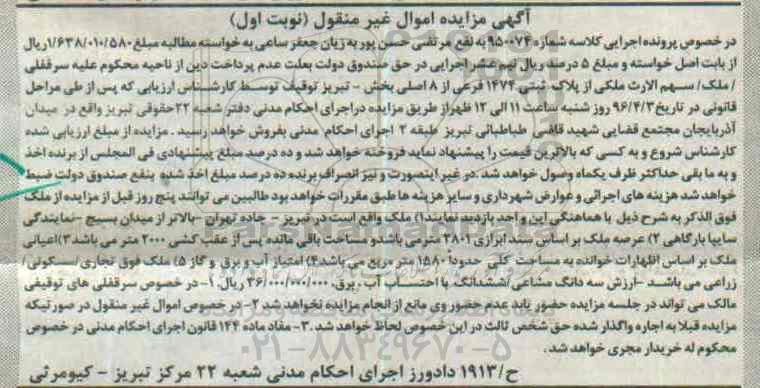 آگهی مزایده اموال غیر منقول (نوبت اول)
در خصوص پرونده اجرایی کلاسه شماره ۹۵۰۰۷۴ به نفع مرتضی حسن پور به زیان جعفر ساعی به خواسته مطالبه مبلغ ۱/۶۳۸/۰۱۰/۵۸۰ریال
از بابت اصل خواسته و مبلغ ۵ درصد ریال نیم عشر اجرایی در حق صندوق دولت بعلت عدم پرداخت دین از ناحیه محکوم علیه سرقفلی
/ ملک/ سهم الارث ملکی از پلاک ثبتی ۱۴۷۴ فرعی از ۸ اصلی بخش - تبریز توقیف توسط کارشناس ارزیابی که پس از طی مراحل
قانونی در تاریخ۹۶/۴/۳ روز شنبه ساعت ۱۱ الی ۱۲ ظهر از طریق مزایده در اجرای احکام مدنی دفتر شعبه ۲۲حقوقی تبریز واقع در میدان
آذربایجان مجتمع قضایی شهید قاضی طباطبائی تبریز طبقه ۲ اجرای احکام مدنی بفروش خواهد رسید . مزایده از مبلغ ارزیابی شده
کارشناس شروع و به کسی که بالاترین قیمت را پیشنهاد نماید فروخته خواهد شد و ده درصد مبلغ پیشنهادی فی المجلس از برنده اخذ
و به ما بقی حداکثر ظرف یکماه وصول خواهد شد .در غیر اینصورت و نیز انصراف برنده ده درصد مبلغ اخذ شده بنفع صندوق دولت ضبط
خواهد شد هزینه های اجرائی و عوارض شهرداری و سایر هزینه ها طبق مقررات خواهد بود طالبین می توانند پنج روز قبل از مزایده از ملک
فوق الذکر به شرح ذیل با هماهنگی این واحد بازدید نمایند۱) ملک واقع است در تبریز - جاده تهران -بالاتر از میدان بسیج -نمایندگی
سایپا بارگاهی ۲) عرصه ملک بر اساس سند ابرازی ۳۸۰۱ متر می باشد و مساحت باقی مانده پس از عقب کشی ۲۰۰۰ متر می باشد ۳)اعیانی
ملک بر اساس اظهارات خوانده به مساحت کلی حدودا ۱۵۸۰ متر مربع می باشد۴) امتیاز آب و برق و گاز ۵) ملک فوق تجاری /سکونی/
زراعی می باشد -ارزش سه دانگ مشاعی/ششدانگ با احتساب آب، برق. ۳۶/۰۰۰/۰۰۰/۰۰۰ ریال. ۱- در خصوص سرقفلی های توقیفی
مالک می تواند در جلسه مزایده حضور یابد عدم حضور وی مانع از انجام مزایده نخواهد شد ۲- در خصوص اموال غیر منقول در صورتیکه
مزایده قبلا به اجاره واگذار شده حق شخص ثالث در این خصوص لحاظ خواهد شد .۳- مفاد ماده ۱۴۴ قانون اجرای احکام مدنی در خصوص
محکوم له خریدار مجری خواهد شد .
ح/۱۹۱۳ دادورز اجرای احکام مدنی شعبه ۲۲ مرکز تبریز - کیومرثی
ParsNamadData
۰۲۱-۸۸۳۴۹۶۷۰-۵